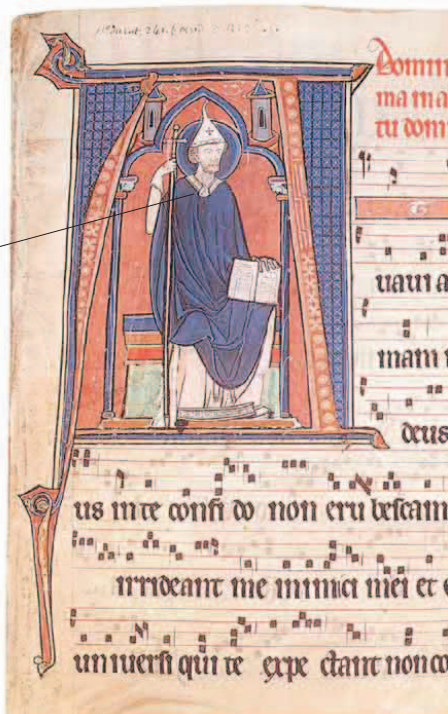 Domin
ma ma
tu dom
uaui a
mam
deus
us in te confi do non eru bescam
irrideant me inimici mei et
uniuersi qui te expe ctant non co